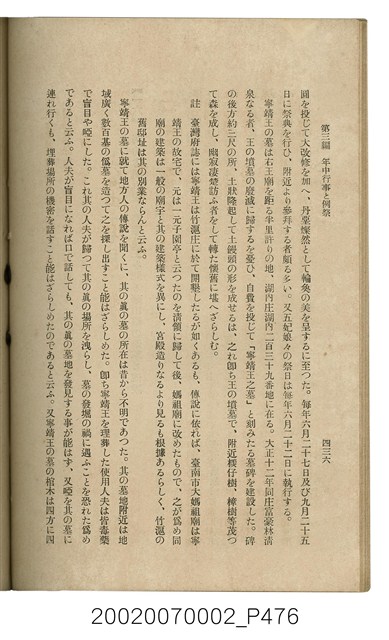 第三編　年中行事と例祭　四三六
圓を投じて大改修を加へ、丹堊燦然として輪奐の美を呈するに至つた。毎年六月二十七日及び九月二十五
日に祭典を行ひ、附近より參拜する者頗る多い。又五妃娘々の祭日は毎年六月二十二日に執行する。
寧靖王の墓は右王廟を距る半里許りの地、湖內庄湖內二百三十九番地に在る。大正十二年同庄富豪林清
泉なる者、王の墳墓の廢滅に歸するを憂ひ、自費を投じて「寧靖王之墓」と刻みたる墓碑を建設した。碑
の後方約三尺の所、土壤隆起して土饅頭の形を成せるは、之れ卽ち王の墳墓で、附近檨仔樹、樟樹等茂つ
て森を成し、幽寂凄楚訪ふ者をして轉た懷舊に堪へざらしむ。
註　臺灣府誌には寧靖王は竹滬庄に於て開墾したるが如くあるも、傳說に依れば、臺南市大媽祖廟は寧
靖王の故宅で、元は一元子園亭と云つたのを清領に歸して後、媽祖廟に改めたもので、之が爲め同
廟の建築は一般の廟宇と其の建築樣式を異にし、宮殿造りなるより見るも根據あるらしく、竹滬の
舊邸址は其の別業ならんと云ふ。
寧靖王の墓に就て地方人の傳說を聞くに、其の眞の墓の所在は昔から不明であつた。其の墓地附近は地
域廣く數百基の僞墓を造つて之を探し出すこと能はざらしめた。卽ち寧靖王を埋葬した使用人夫は皆毒藥
で盲目や啞にした。これ其の人夫が歸つて其の眞の場所を洩らし、墓の發堀の禍に遇ふことを恐れた爲め
であると云ふ。人夫が盲目になれば口で話しても、其の眞の墓地を發見する事が能はず、又啞を其の墓に
連れ行くも、埋葬場所の機密を話すこと能はざらしめたのであると云ふ。又寧靖王の墓の棺木は四方に四
20020070002_P476